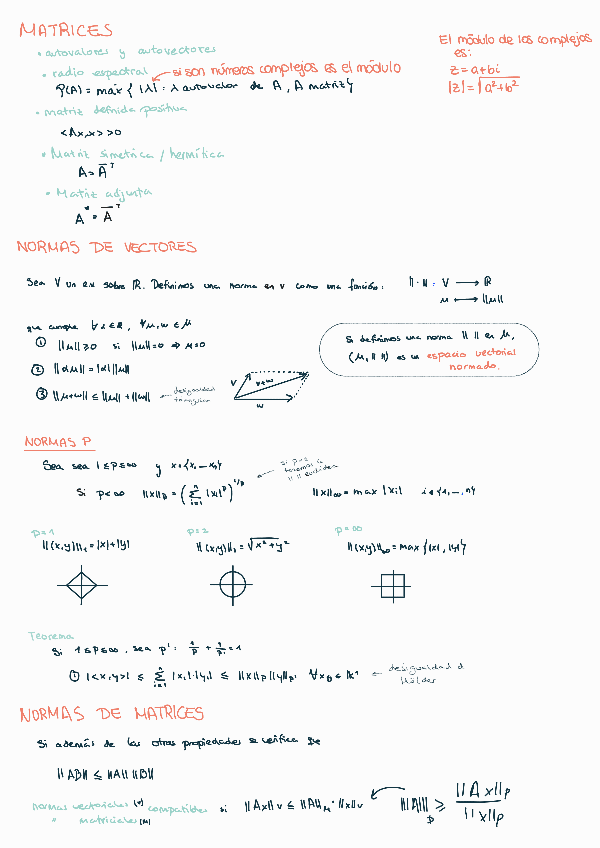 MATRICES
• autovalores y autovectores
• radio espectral ← si son números complejos es el módulo
ρ(A) = máx { |λ| : λ autovalor de A, A matriz}
• matriz definida positiva
<Ax,x> >0
• Matriz simetrica / hermítica
A = A̅ᵀ
• Matriz adjunta
A* = A̅ᵀ
El módulo de los complejos
es:
z = a+bi
|z| = √a²+b²
NORMAS DE VECTORES
Sea V un e.v sobre ℝ. Definimos una norma en v como una función:
‖·‖ : V → ℝ
u ↦ ‖u‖
que cumple ∀
① ‖u‖ ≥ 0 si ‖u‖=0 ⇒ u=0
② ‖αu‖ = |α| ‖u‖
③ ‖u+w‖ ≤ ‖u‖ + ‖w‖ ← desigualdad
triangular
V
v+w
w
Si definimos una norma ‖ ‖ en M,
(M, ‖ ‖) es un espacio vectorial
normado.
NORMAS P
Sea sea 1 ≤ p ≤ ∞ y x = {x₁ ... xₙ}
Si p < ∞ ‖x‖p = (Σ |xᵢ|ᵖ)^1/p
n
i=1
← si p=2
tenemos a
‖ ‖ euclídea
‖x‖∞ = max |xᵢ| i ∈ {1, ..., n}
p=1
‖(x,y)‖₁ = |x|+|y|
p=2
‖(x,y)‖₂ = √x²+y²
p=∞
‖(x,y)‖∞ = max {|x|, |y|}
Teorema
Si 1 ≤ p ≤ ∞, sea p' : 1/p + 1/p' = 1
① |<x,y>| ≤ Σ |xᵢ|·|yᵢ| ≤ ‖x‖p ‖y‖p'
n
i=1
← desigualdad d
Hölder
NORMAS DE MATRICES
Si además de las otras propiedades se verifica que
‖AB‖ ≤ ‖A‖ ‖B‖
normas vectoriales (v) compatibles si ‖Ax‖v ≤ ‖A‖M · ‖x‖v
" matriciales (M)
‖|A|‖p ≥ ‖Ax‖p / ‖x‖p